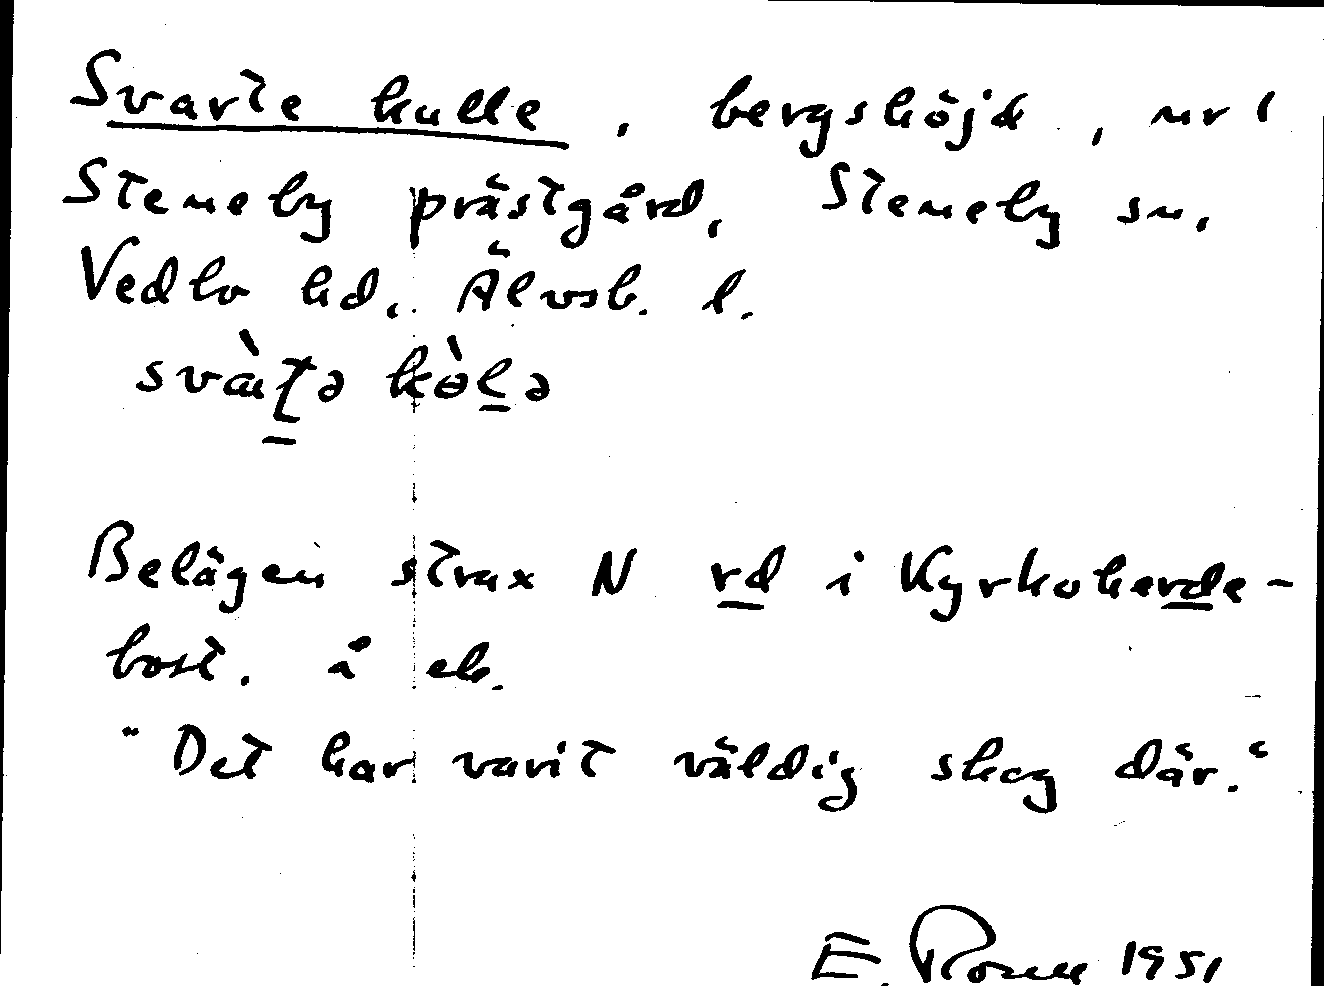 Svarte kulle, bergshöjd, nr 1
Steneby prästgård, Steneby sn,
Vedbo hd, Älvsb. l.
Belägen strax N rd i Kyrkoherde-
bost. å ek.
"Det har varit väldig skog där."
E. 1951